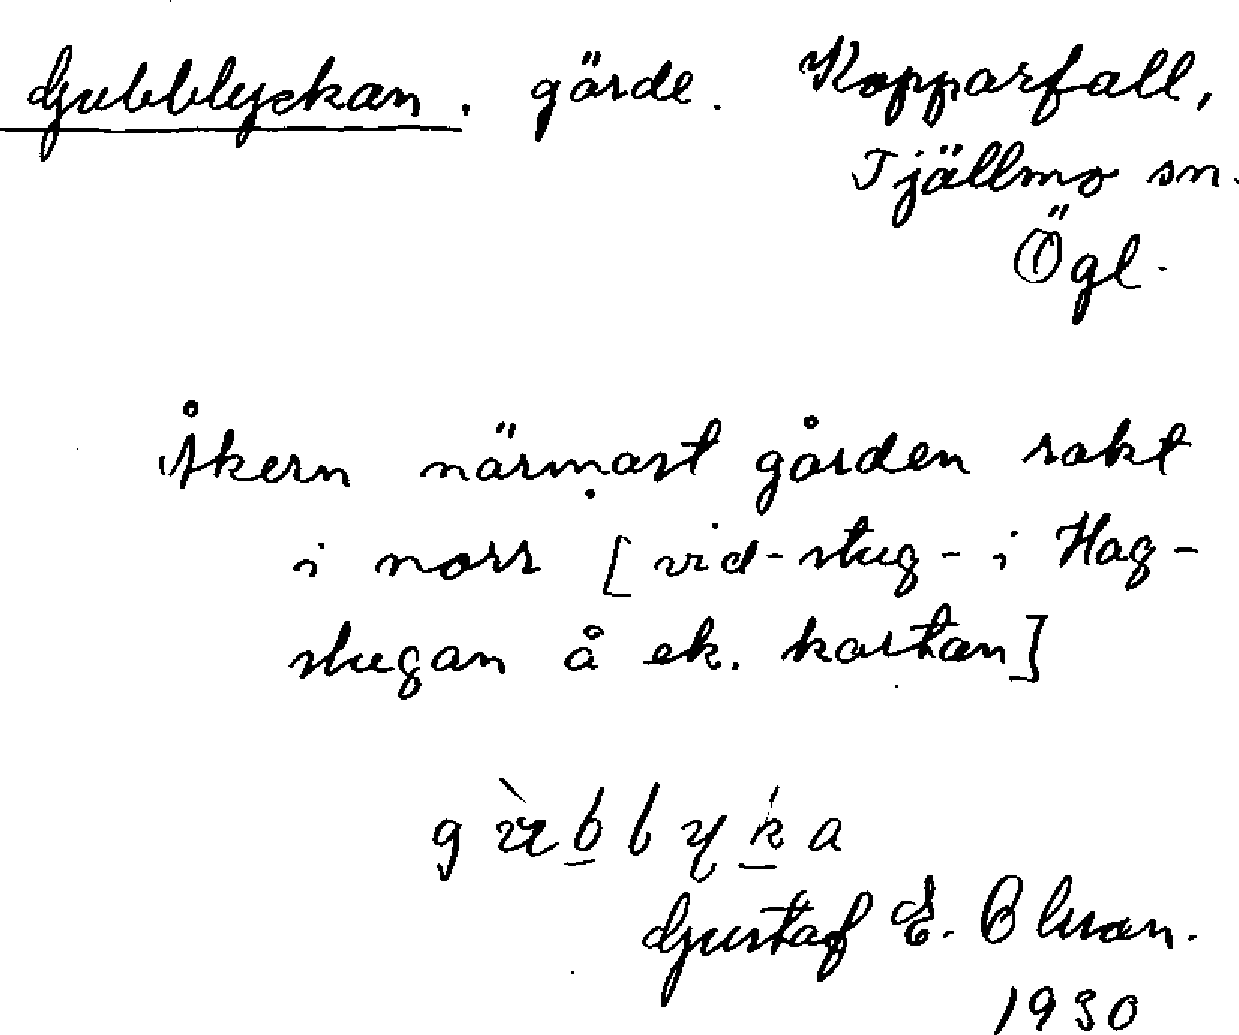 Gubblyckan. gärde. Kopparfall,
Tjällmo sn.
Ögl.
Åkern närmast gården rakt
i norr [vid-stug- i Hag-
stugan å ek. kartan]
Gustaf E. Bluan.
1930